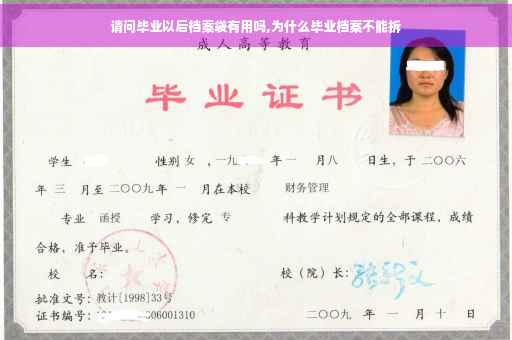 请问毕业以后档案袋有用吗,为什么毕业档案不能拆
成人高等教育
毕业证书
学生 性别 女 ,一九 年 一 月 八 日生，于 二〇〇六
年 三 月至 二〇〇九 年 一 月在本校 财务管理
专业 函授 学习，修完 专 科教学计划规定的全部课程，成绩
合格，准予毕业。
校 名： 校（院）长：
批准文号：教计[1998]33号
证书编号： 06001310 二〇〇九 年 一 月 十 日